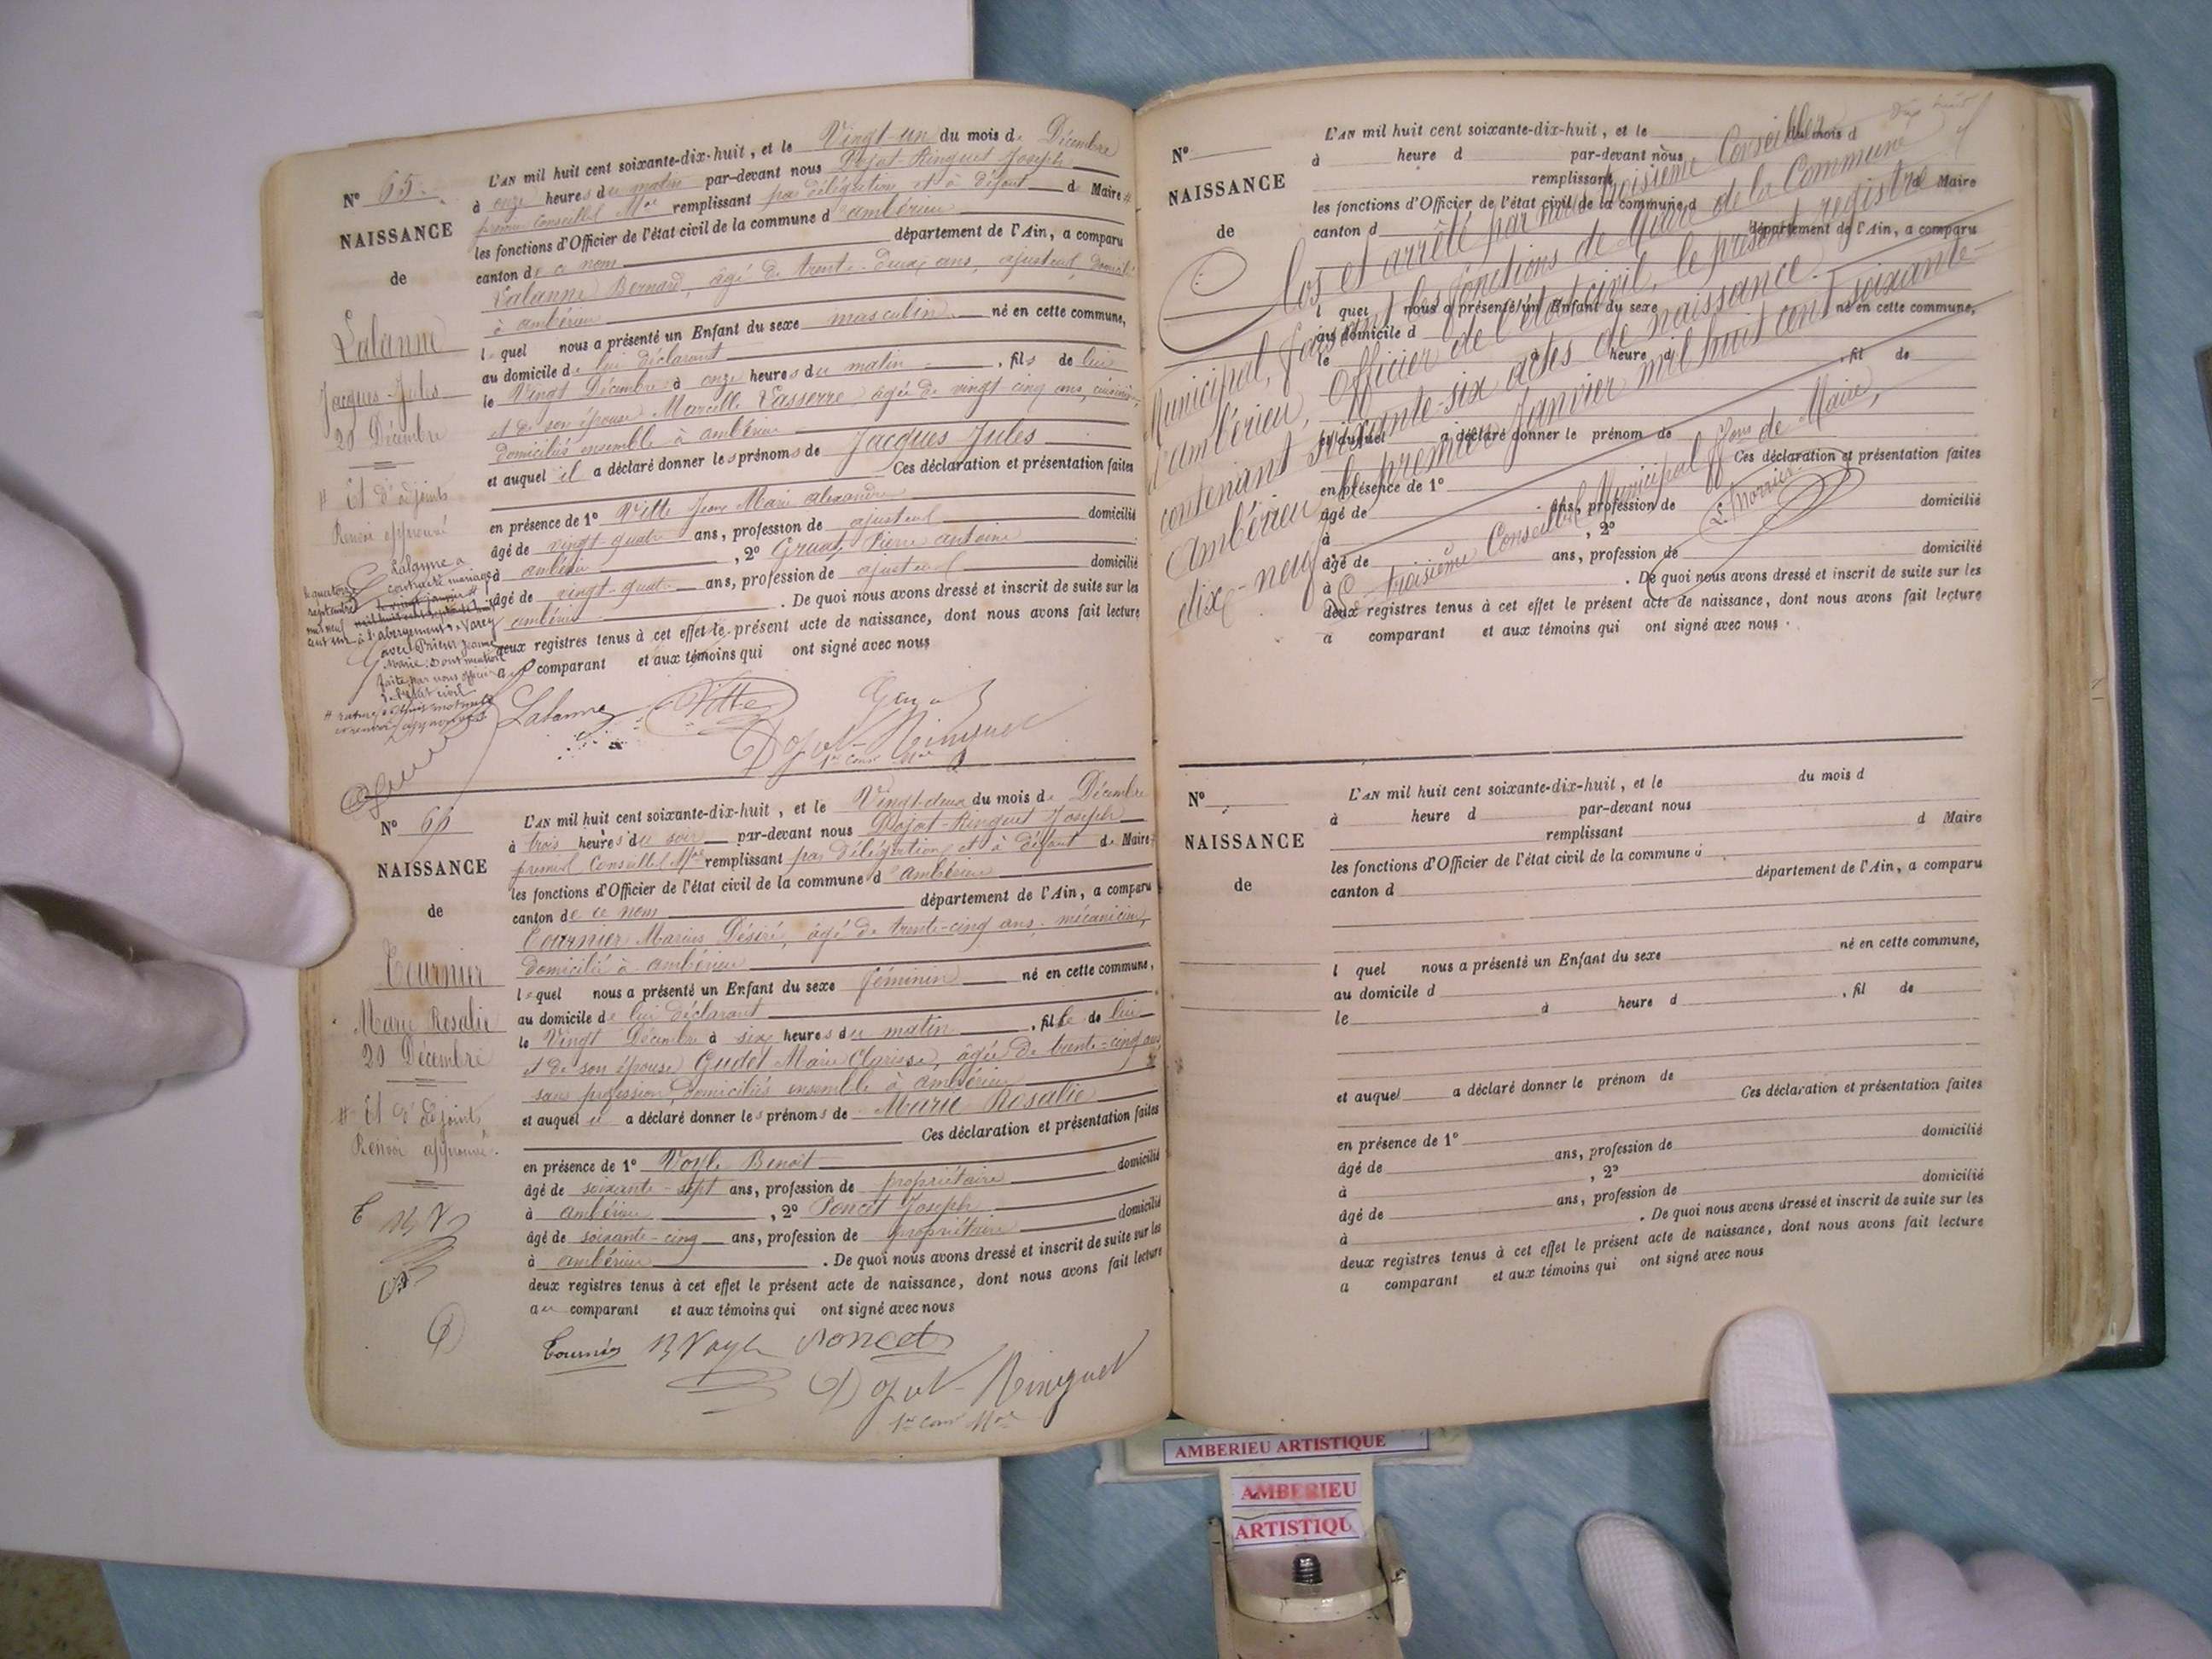 N° 65.
NAISSANCE
de
Lalanne
Jacques-Jules
20 Décembre
# Et d'adjoints
Renvoi approuvé
Lalanne a
contracté mariage
à l'abergement de Varey
avec Prieur Jeanne
Marie. Dont mention
faite par nous officier
de l'état civil
L'AN mil huit cent soixante-dix-huit, et le Vingt-un du mois de Décembre
à onze heures du matin par-devant nous Dojat-Ringuet Joseph
premier Conseiller Mal remplissant par délégation et à défaut de Maire #
les fonctions d'Officier de l'état civil de la commune d'ambérieu
canton de ce nom département de l'Ain, a comparu
Lalanne Bernard, âgé de trente-deux ans, ajusteur, domicilié
à ambérieu
lequel nous a présenté un Enfant du sexe masculin né en cette commune,
au domicile de lui déclarant
le Vingt Décembre à onze heures du matin, fils de lui
et de son épouse Marcelle Lasserre âgée de vingt cinq ans,
domiciliés ensemble à ambérieu
et auquel il a déclaré donner les prénoms de Jacques Jules
Ces déclaration et présentation faites
en présence de 1° Vitte Jean Marie alexandre
âgé de vingt-quatre ans, profession de ajusteur domicilié
à ambérieu, 2° Pierre antoine
âgé de vingt-quatre ans, profession de ajusteur domicilié
à ambérieu. De quoi nous avons dressé et inscrit de suite sur les
deux registres tenus à cet effet le présent acte de naissance, dont nous avons fait lecture
au comparant et aux témoins qui ont signé avec nous
Lalanne Vitte
Dojat-Ringuet
1er Conr Mal
N° 66
NAISSANCE
de
Tournier
Marie Rosalie
20 Décembre
# Et d'adjoints
Renvoi approuvé.
T BV
L'AN mil huit cent soixante-dix-huit, et le Vingt-deux du mois de Décembre
à trois heures du soir par-devant nous Dojat-Ringuet Joseph
premier Conseiller Mal remplissant par délégation et à défaut de Maire #
les fonctions d'Officier de l'état civil de la commune d'ambérieu
canton de ce nom département de l'Ain, a comparu
Tournier Marius Désiré, âgé de trente-cinq ans, mécanicien,
domicilié à ambérieu
lequel nous a présenté un Enfant du sexe féminin né en cette commune,
au domicile de lui déclarant
le Vingt Décembre à six heures du matin, fille de lui
et de son épouse Gudet Marie Clarisse, âgée de trente-cinq ans
sans profession, domiciliés ensemble à ambérieu
et auquel il a déclaré donner les prénoms de Marie Rosalie
Ces déclaration et présentation faites
en présence de 1° Voyle Benoît
âgé de soixante-sept ans, profession de propriétaire domicilié
à ambérieu, 2° Poncet Joseph
âgé de soixante-cinq ans, profession de propriétaire domicilié
à ambérieu. De quoi nous avons dressé et inscrit de suite sur les
deux registres tenus à cet effet le présent acte de naissance, dont nous avons fait lecture
au comparant et aux témoins qui ont signé avec nous
Tournier B Voyle Poncet
Dojat-Ringuet
1er Conr Mal
N°
NAISSANCE
de
L'AN mil huit cent soixante-dix-huit, et le du mois d
à heure d par-devant nous
remplissant d Maire
les fonctions d'Officier de l'état civil de la commune d
canton d département de l'Ain, a comparu
l quel nous a présenté un Enfant du sexe né en cette commune,
au domicile d
le à heure d, fil de
et auquel a déclaré donner le prénom de
Ces déclaration et présentation faites
en présence de 1°
âgé de ans, profession de domicilié
à, 2°
âgé de ans, profession de domicilié
à. De quoi nous avons dressé et inscrit de suite sur les
deux registres tenus à cet effet le présent acte de naissance, dont nous avons fait lecture
a comparant et aux témoins qui ont signé avec nous.
Clos et arrêté par nous troisième Conseiller
Municipal, faisant les fonctions de Maire de la Commune
d'ambérieu, Officier de l'état civil, le présent registre
contenant soixante-six actes de naissance.
Ambérieu le premier Janvier mil huit cent soixante-
dix-neuf
Le troisième Conseiller Municipal ffons de Maire,
N°
NAISSANCE
de
L'AN mil huit cent soixante-dix-huit, et le du mois d
à heure d par-devant nous
remplissant d Maire
les fonctions d'Officier de l'état civil de la commune d
canton d département de l'Ain, a comparu
l quel nous a présenté un Enfant du sexe né en cette commune,
au domicile d
le à heure d, fil de
et auquel a déclaré donner le prénom de
Ces déclaration et présentation faites
en présence de 1°
âgé de ans, profession de domicilié
à, 2°
âgé de ans, profession de domicilié
à. De quoi nous avons dressé et inscrit de suite sur les
deux registres tenus à cet effet le présent acte de naissance, dont nous avons fait lecture
a comparant et aux témoins qui ont signé avec nous
AMBERIEU ARTISTIQUE
AMBERIEU
ARTISTIQU